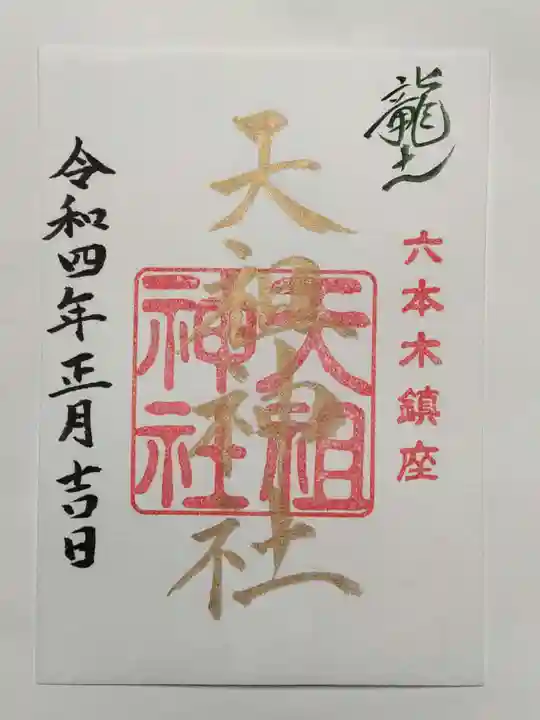 龍土
六本木鎮座
天祖神社
天祖
神社
令和四年正月吉日